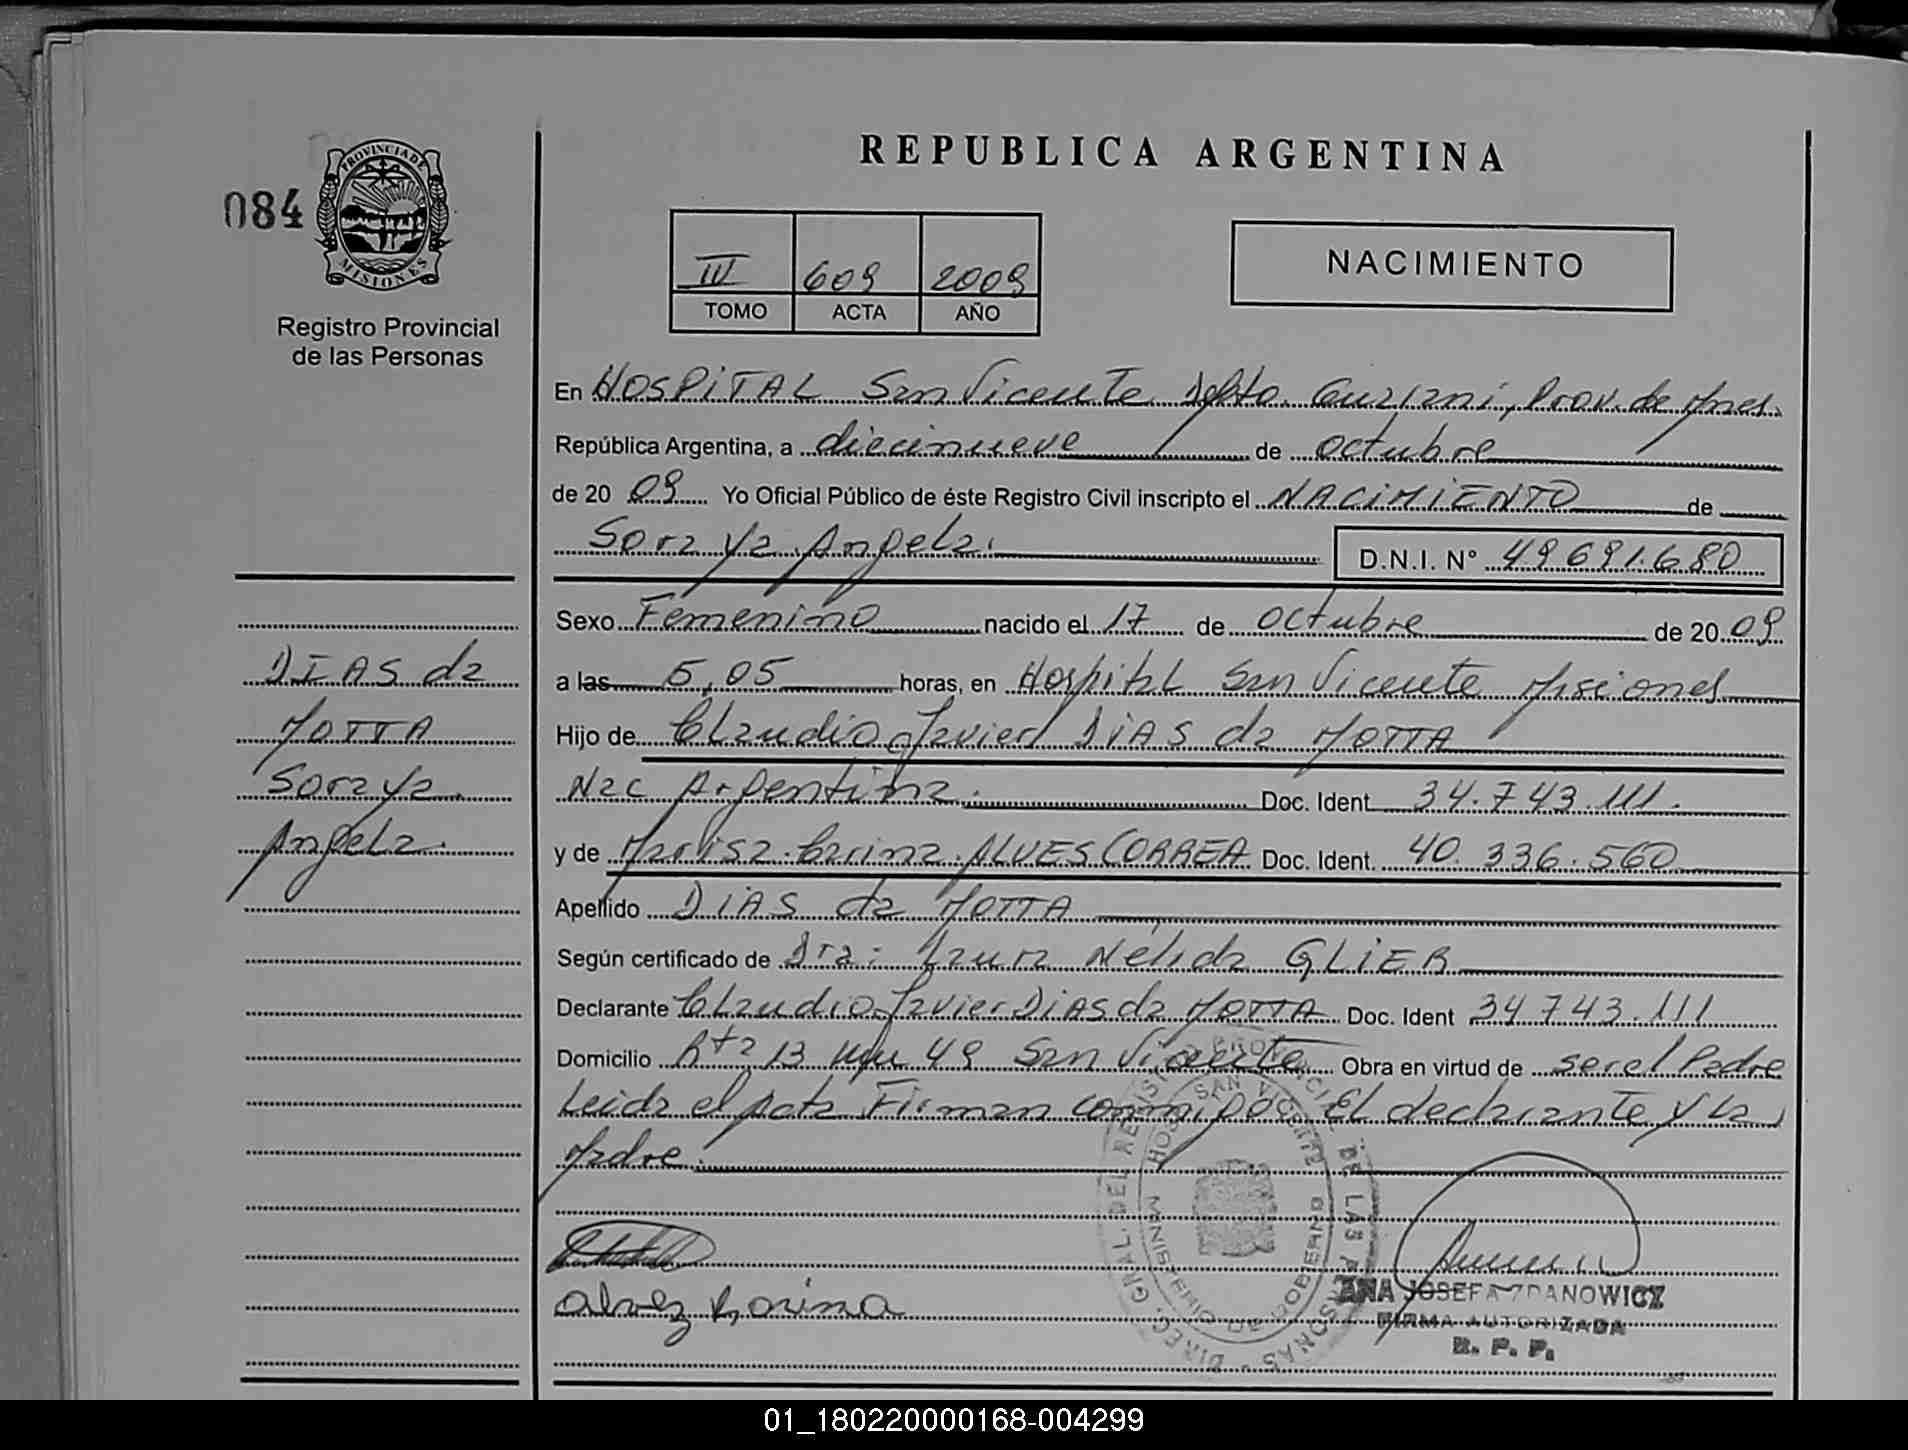 REPUBLICA ARGENTINA
084
PROVINCIA DE
MISIONES
Registro Provincial
de las Personas
III 609 2009
TOMO ACTA AÑO
NACIMIENTO
En HOSPITAL San Vicente Dpto. Guarani, Prov. de Mnes.
República Argentina, a diecinueve de octubre
de 20 09 Yo Oficial Público de éste Registro Civil inscripto el NACIMIENTO de
Soraya Angela.
D.N.I. N° 49691.680
Sexo Femenino nacido el 17 de octubre de 20 09
a las 5,05 horas, en Hospital San Vicente Misiones
Hijo de Claudio Javier DIAS da MOTTA
Nac Argentina. Doc. Ident. 34.743.111.
y de Marisa Carina ALVES CORREA Doc. Ident. 40.336.560
Apellido DIAS da MOTTA
Según certificado de Dra: Laura Nélida GLIER
Declarante Claudio Javier Dias da MOTTA Doc. Ident 34 743.111
Domicilio Rta 13 49 San Vicente Obra en virtud de ser el Padre
Leida el Acta Firman conmigo El declarante y La
Madre.
DIAS da
MOTTA
Soraya
Angela.
alvez Karina
DIREC. GRAL. DEL REGISTRO PROVINCIAL DE LAS PERSONAS
HOSP. SAN VICENTE
MINISTERIO DE GOBIERNO
ANA JOSEFA ZDANOWICZ
FIRMA AUTORIZADA
R. P. P.
01_180220000168-004299